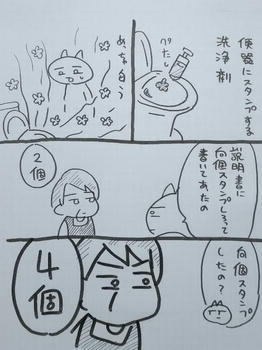 便器にスタンプする
洗浄剤
ぺたし
めちゃ匂う
説明書に
何個スタンプしろって
書いてあたの
2個
何個スタンプ
したの?
4個